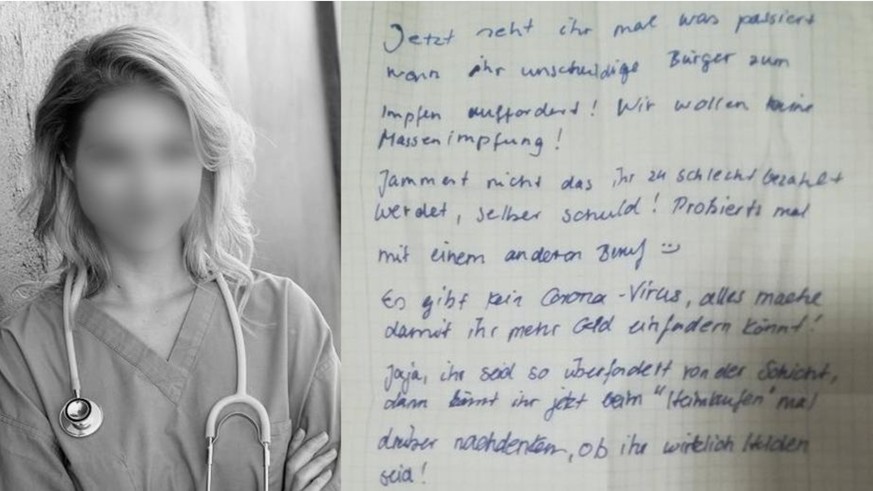 Jetzt seht ihr mal was passiert
wann ihr unschuldige Bürger zum
Impfen auffordert! Wir wollen keine
Massenimpfung!
Jammert nicht das ihr zu schlecht bezahlt
werdet, selber schuld! Probierts mal
mit einem anderen Beruf :)
Es gibt kein Corona-Virus, alles mache
damit ihr mehr Geld einfordern könnt!
Jaja, ihr seid so überfordert von der Schicht,
dann könnt ihr jetzt beim "Heimlaufen" mal
drüber nachdenken, ob ihr wirklich Helden
seid!